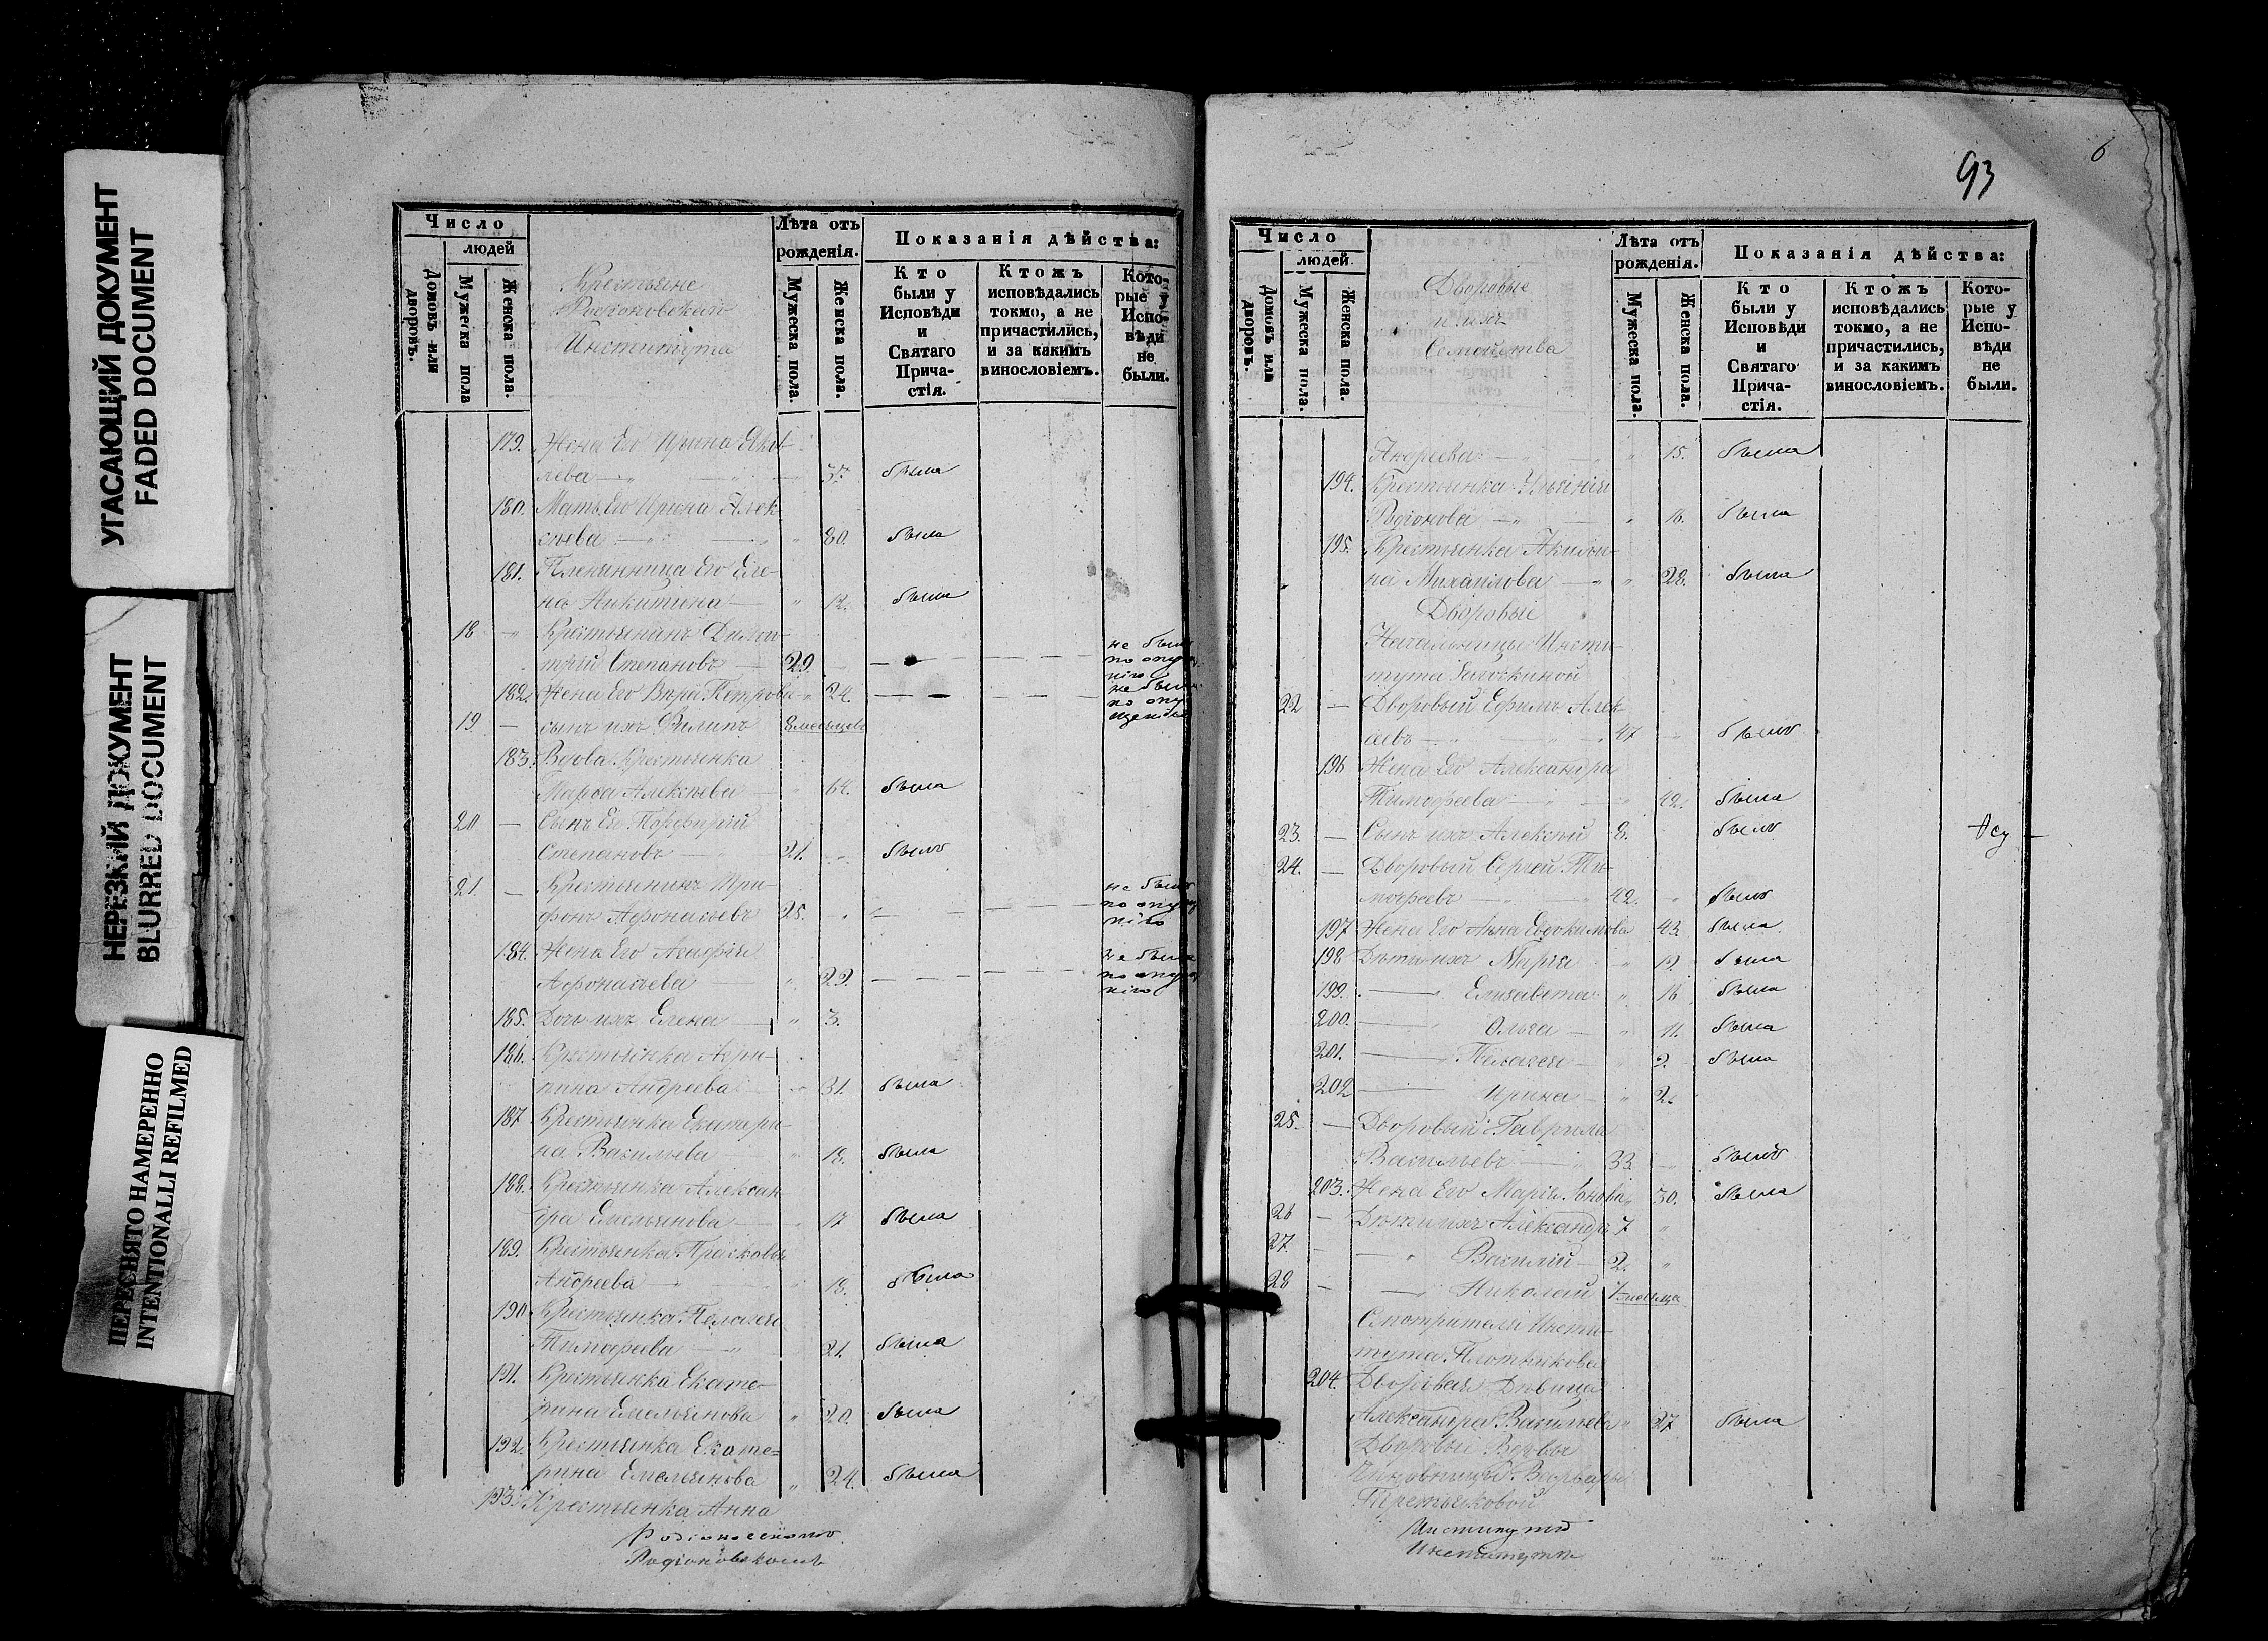 УГАСАЮЩИЙ ДОКУМЕНТ
FADED DOCUMENT
НЕРЕЗКИЙ ДОКУМЕНТ
BLURRED DOCUMENT
ПЕРЕСНЯТО НАМЕРЕННО
INTENTIONALLI REFILMED
Число
людей
Домовъ или дворовъ.
Мужеска пола
Женска пола.
Крестьяне
Родіоновскаго
Института
Лѣта отъ рожденія.
Мужеска пола.
Женска пола.
Показанія дѣйства:
Кто были у Исповѣди и Святаго Прича-стія.
Ктожъ исповѣдались токмо, а не причастились, и за какимъ винословіемъ.
Кото-рые у Испо-вѣди не были.
179. Жена Его Ирина
лева 37. была
180. Мать Его Ирина Алек-
сѣева 80. была
181. Племянница Его Еле-
на Никитина 12. была
18 Крестьянинъ Дими-
трій Степановъ 29. не былъ по
182. Жена Его Петрова 24. не была по
19 сынъ ихъ Филипъ 8 месяцевъ
183. Вдова Крестьянка
Марѳа Алексѣева 64. была
20 Сынъ Ея Порфирій
Степановъ 21. былъ
21. Крестьянинъ Три-
фонъ Афонасьевъ 25. не былъ по
184. Жена Его Агафія
Афонасьева 22. не была по
185. Дочь ихъ Елена 3.
186. Крестьянка Агри-
пина Андреева 31. была
187 Крестьянка Екатери-
на Васильева 18. была
188. Крестьянка Алексан-
дра Емельянова 17 была
189. Крестьянка Прасковья
Андреева 18. была
190 Крестьянка Пелагея
Тимофеева 21. была
191. Крестьянка Екате-
рина Емельянова 20. была
192. Крестьянка Екате-
рина Емельянова 24. была
193. Крестьянка Анна
Родіоновскомъ
93
6
Число
людей.
Домовъ или дворовъ.
Мужеска пола.
Женска пола.
Дворовые
и ихъ
Семейства
Лѣта отъ рожденія.
Мужеска пола.
Женска пола.
Показанія дѣйства:
Кто были у Исповѣди и Святаго Прича-стія.
Ктожъ исповѣдались токмо, а не причастились, и за какимъ винословіемъ.
Кото-рые у Испо-вѣди не были.
Андреева 15. была
194. Крестьянка Ульянія
Родіонова 16. была
195. Крестьянка Акили-
на Михаилова 28. была
Дворовые
Начальницы Инсти-
тута Загоскиной
22 Дворовый Ефимъ Алек-
сѣевъ 47 былъ
196 Жена Его Александра
Тимофеева 42. была
23. Сынъ ихъ Алексѣй 8. былъ
24. Дворовый Сергѣй Ти-
мофеевъ 42. былъ
197 Жена Его Анна Евдокимова 43. была
198 Дѣти ихъ Марія была
199. Елизавета 16 была
200. Ольга 11. была
201. Пелагея была
202 Ирина 2.
25. Дворовый Гаврила
Васильевъ 33. былъ
203. Жена Его Марія 30. была
26 Дѣти ихъ Александръ 7
27. Василій 2.
28 Николай 7 месяца
Смотрителя Инсти-
тута Плотникова
204. Дворовая Дѣвица
Александра Васильева 27 была
Дворовые Вдовы
Чиновницы Варвары
Третьяковой
Институтѣ